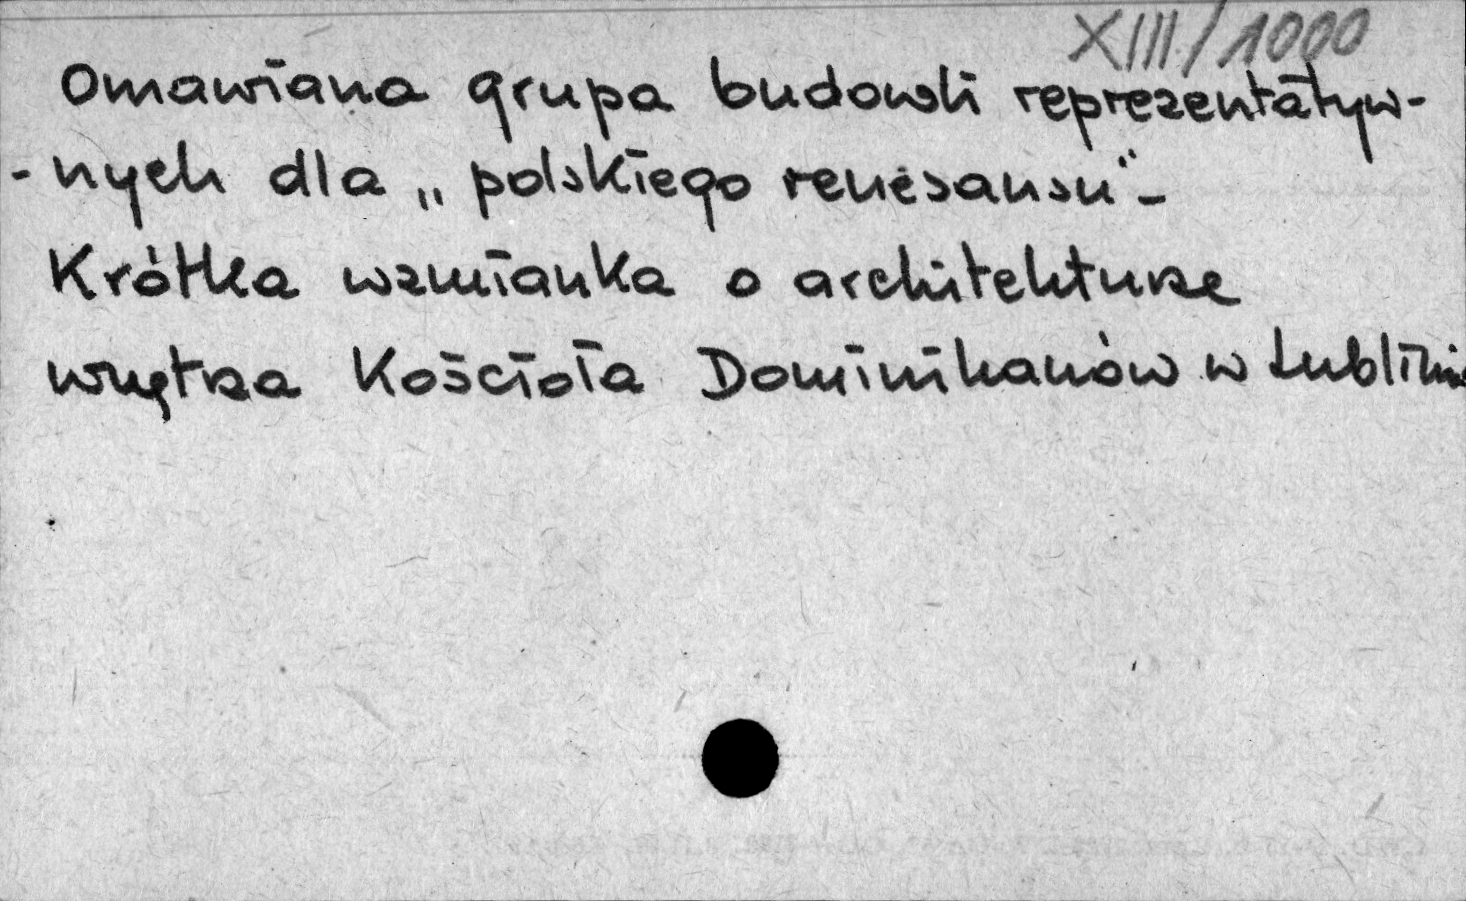 XIII/1000
Omawiana grupa budowli reprezentatyw-
-nych dla „polskiego renesansu” –
Krótka wzmianka o architekturze
wnętrza Kościoła Dominikanów w Lublinie